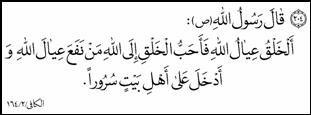 ﴿٢٠٤﴾ قَالَ رَسُولُ اللهِ (ص):
أَلْخَلْقُ عِيالُ اللهِ فَأَحَبُّ الْخَلْقِ إِلَى اللهِ مَنْ نَفَعَ عِيالَ اللهِ وَ
أَدْخَلَ عَلىٰ أَهْلِ بَيْتٍ سُرُوراً.
الكافي/٢/١٦٤